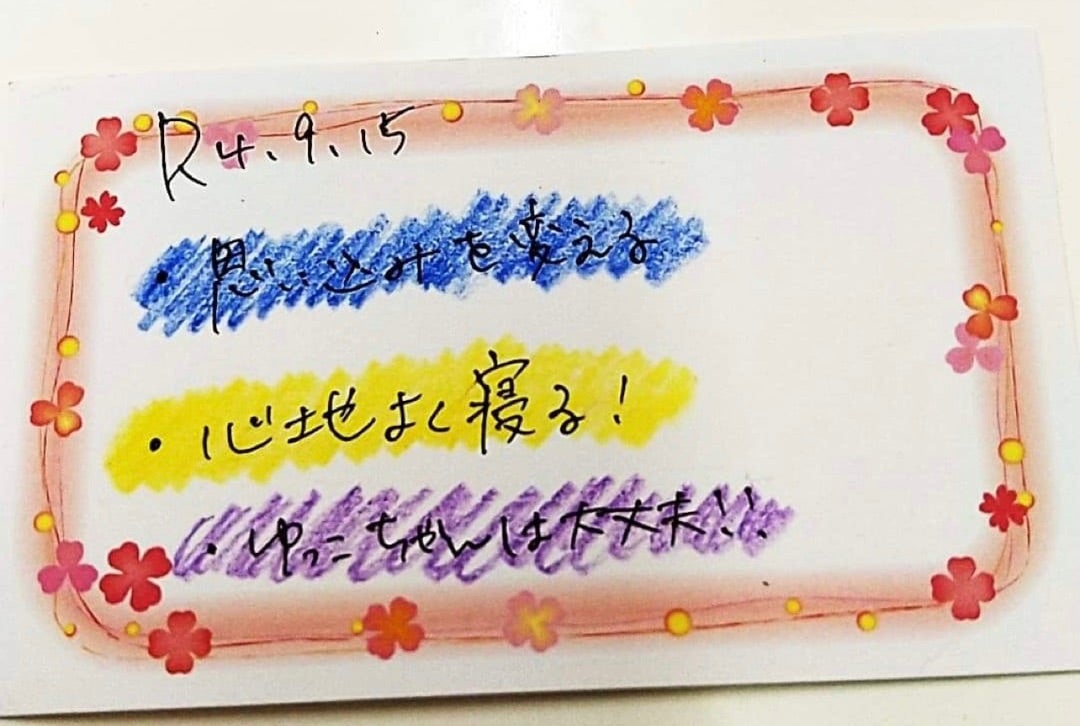 R4.9.15
・思い込みを変える
・心地よく寝る!
・ゆっこちゃんは大丈夫!!